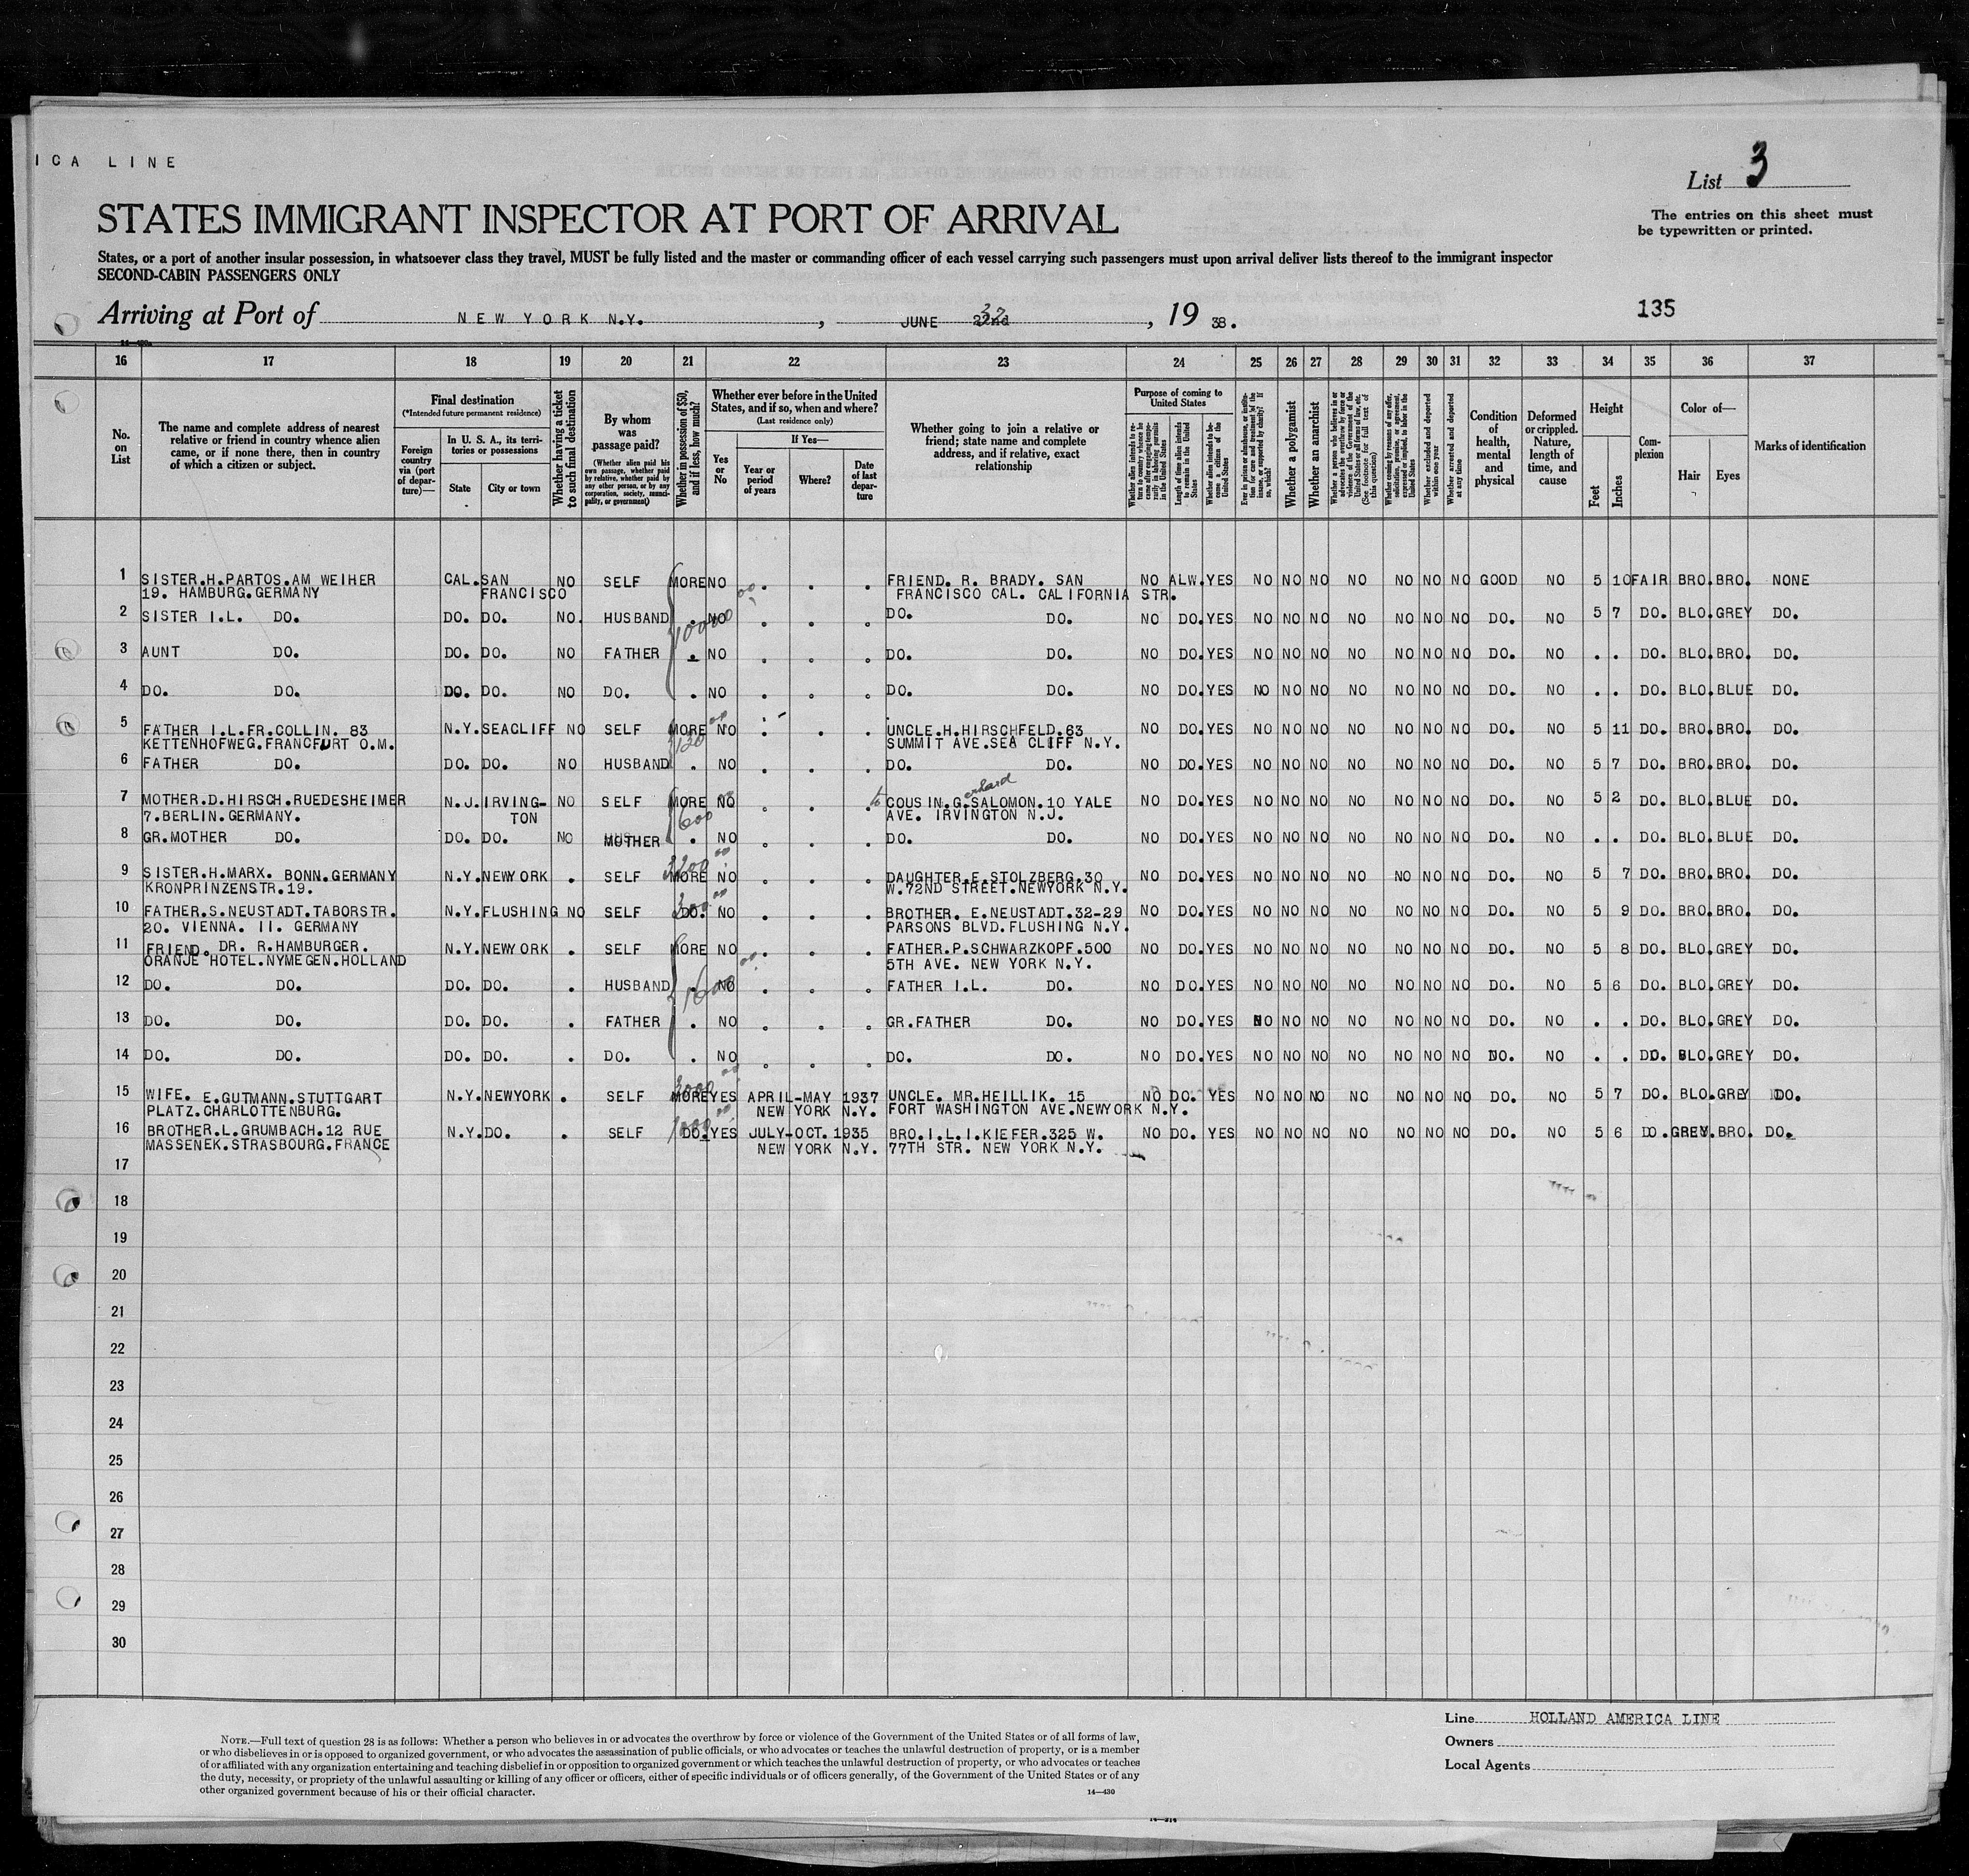 ICA LINE
List 3
STATES IMMIGRANT INSPECTOR AT PORT OF ARRIVAL
The entries on this sheet must
be typewritten or printed.
States, or a port of another insular possession, in whatsoever class they travel, MUST be fully listed and the master or commanding officer of each vessel carrying such passengers must upon arrival deliver lists thereof to the immigrant inspector
SECOND-CABIN PASSENGERS ONLY
Arriving at Port of NEW YORK N.Y. , JUNE 22nd , 19 38.
135
16 17 18 19 20 21 22 23 24 25 26 27 28 29 30 31 32 33 34 35 36 37
No. on List
The name and complete address of nearest relative or friend in country whence alien came, or if none there, then in country of which a citizen or subject.
Final destination
(*Intended future permanent residence)
Foreign country via (port of departure)—
In U. S. A., its territories or possessions
State
City or town
Whether having a ticket to such final destination
By whom was passage paid?
(Whether alien paid his own passage, whether paid by relative, whether paid by any other person, or by any corporation, society, municipality, or government)
Whether in possession of $50, and if less, how much?
Whether ever before in the United States, and if so, when and where?
(Last residence only)
Yes or No
If Yes—
Year or period of years
Where?
Date of last departure
Whether going to join a relative or friend; state name and complete address, and if relative, exact relationship
Purpose of coming to United States
Whether alien intends to return to country whence he came after engaging temporarily in laboring pursuits in the United States
Length of time alien intends to remain in the United States
Whether alien intends to become a citizen of the United States
Ever in prison or almshouse, or institution for care and treatment of the insane, or supported by charity? If so, which?
Whether a polygamist
Whether an anarchist
Whether a person who believes in or advocates the overthrow by force or violence of the Government of the United States or all forms of law, etc. (See footnote for full text of this question)
Whether coming by reason of any offer, solicitation, promise, or agreement, expressed or implied, to labor in the United States
Whether excluded and deported within one year
Whether arrested and deported at any time
Condition of health, mental and physical
Deformed or crippled. Nature, length of time, and cause
Height
Feet
Inches
Complexion
Color of—
Hair
Eyes
Marks of identification
1 SISTER.H.PARTOS.AM WEIHER CAL. SAN NO SELF MORE NO . . . FRIEND. R. BRADY. SAN NO ALW. YES NO NO NO NO NO NO NO GOOD NO 5 10 FAIR BRO. BRO. NONE
19. HAMBURG.GERMANY FRANCISCO FRANCISCO CAL. CALIFORNIA STR.
2 SISTER I.L. DO. DO. DO. NO. HUSBAND . NO . . . DO. DO. NO DO. YES NO NO NO NO NO NO NO DO. NO 5 7 DO. BLO. GREY DO.
3 AUNT DO. DO. DO. NO FATHER . NO . . . DO. DO. NO DO. YES NO NO NO NO NO NO NO DO. NO . . DO. BLO. BRO. DO.
4 DO. DO. DO. DO. NO DO. . NO . . . DO. DO. NO DO. YES NO NO NO NO NO NO NO DO. NO . . DO. BLO. BLUE DO.
5 FATHER I.L.FR.COLLIN. 83 N.Y. SEACLIFF NO SELF MORE NO . . . UNCLE.H.HIRSCHFELD.63 NO DO. YES NO NO NO NO NO NO NO DO. NO 5 11 DO. BRO. BRO. DO.
KETTENHOFWEG.FRANCFURT O.M. 120 SUMMIT AVE.SEA CLIFF N.Y.
6 FATHER DO. DO. DO. NO HUSBAND . NO . . . DO. DO. NO DO. YES NO NO NO NO NO NO NO DO. NO 5 7 DO. BRO. BRO. DO.
7 MOTHER.D.HIRSCH.RUEDESHEIMER N.J. IRVING- NO SELF MORE NO . . . to COUSIN.G.erhard SALOMON.10 YALE NO DO. YES NO NO NO NO NO NO NO DO. NO 5 2 DO. BLO. BLUE DO.
7.BERLIN.GERMANY. TON 600 AVE. IRVINGTON N.J.
8 GR.MOTHER DO. DO. DO. NO MOTHER . NO . . . DO. DO. NO DO. YES NO NO NO NO NO NO NO DO. NO . . DO. BLO. BLUE DO.
9 SISTER.H.MARX. BONN.GERMANY N.Y. NEWYORK . SELF MORE NO . . . DAUGHTER.E.STOLZBERG.30 NO DO. YES NO NO NO NO NO NO NO DO. NO 5 7 DO. BRO. BRO. DO.
KRONPRINZENSTR.19. W.72ND STREET.NEWYORK N.Y.
10 FATHER.S.NEUSTADT.TABORSTR. N.Y. FLUSHING NO SELF 300 DO. NO . . . BROTHER. E.NEUSTADT.32-29 NO DO. YES NO NO NO NO NO NO NO DO. NO 5 9 DO. BRO. BRO. DO.
20. VIENNA. II. GERMANY PARSONS BLVD.FLUSHING N.Y.
11 FRIEND. DR. R.HAMBURGER. N.Y. NEWYORK . SELF MORE NO . . . FATHER.P.SCHWARZKOPF.500 NO DO. YES NO NO NO NO NO NO NO DO. NO 5 8 DO. BLO. GREY DO.
ORANJE HOTEL.NYMEGEN.HOLLAND 5TH AVE. NEW YORK N.Y.
12 DO. DO. DO. DO. . HUSBAND . NO . . . FATHER I.L. DO. NO DO. YES NO NO NO NO NO NO NO DO. NO 5 6 DO. BLO. GREY DO.
13 DO. DO. DO. DO. . FATHER . NO . . . GR.FATHER DO. NO DO. YES NO NO NO NO NO NO NO DO. NO . . DO. BLO. GREY DO.
14 DO. DO. DO. DO. . DO. . NO . . . DO. DO. NO DO. YES NO NO NO NO NO NO NO DO. NO . . DO. BLO. GREY DO.
15 WIFE. E.GUTMANN.STUTTGART N.Y. NEWYORK . SELF MORE YES APRIL-MAY 1937 UNCLE. MR.HEILLIK. 15 NO DO. YES NO NO NO NO NO NO NO DO. NO 5 7 DO. BLO. GREY DO.
PLATZ.CHARLOTTENBURG. NEW YORK N.Y. FORT WASHINGTON AVE.NEWYORK N.Y.
16 BROTHER.L.GRUMBACH.12 RUE N.Y. DO. . SELF 1000 DO. YES JULY-OCT.1935 BRO.I.L.I.KIEFER.325 W. NO DO. YES NO NO NO NO NO NO NO DO. NO 5 6 DO. GREY. BRO. DO.
MASSENEK.STRASBOURG.FRANCE NEW YORK N.Y. 77TH STR. NEW YORK N.Y.
17
18
19
20
21
22
23
24
25
26
27
28
29
30
Line HOLLAND AMERICA LINE
Owners
Local Agents
NOTE.—Full text of question 28 is as follows: Whether a person who believes in or advocates the overthrow by force or violence of the Government of the United States or of all forms of law,
or who disbelieves in or is opposed to organized government, or who advocates the assassination of public officials, or who advocates or teaches the unlawful destruction of property, or is a member
of or affiliated with any organization entertaining and teaching disbelief in or opposition to organized government or which teaches the unlawful destruction of property, or who advocates or teaches
the duty, necessity, or propriety of the unlawful assaulting or killing of any officer or officers, either of specific individuals or of officers generally, of the Government of the United States or of any
other organized government because of his or their official character.
14—430